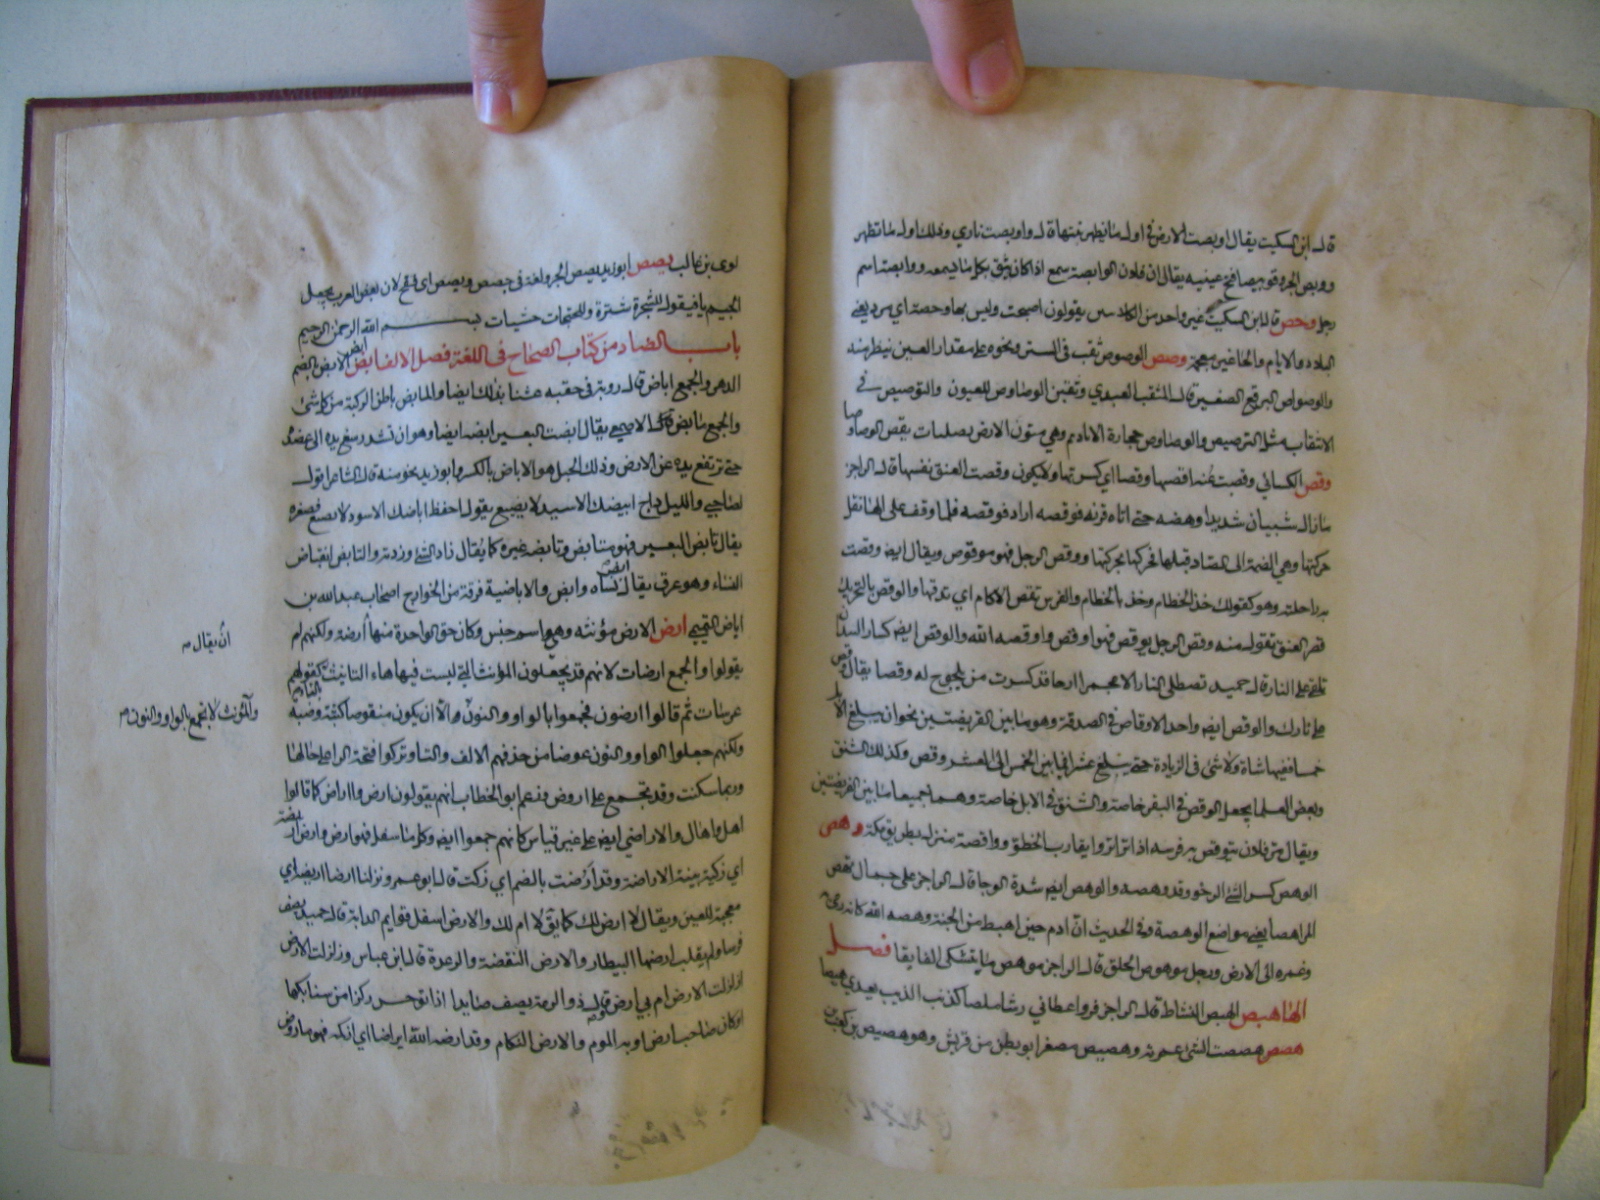 قال ابن السكيت يقال اوبصت الارض في اول ما يظهر نبتها قال واوبصت ناري وذلك اول ما تظهر
ووبص الجرو توبيصا فتح عينيه يقال ان فلان الوابصة سمع اذا كان يثق بكل ما يسمعه ووابصة اسم
رجل وحص قال ابن السكيت غير واحد من الكلابيين يقولون اصبحت وليس بها وحصة اي برد يعني
البلاد والايام والحاء غير معجمة وصص الوصوص ثقب في الستر ونحوه على مقدار العين ينظر منه
والوصواص البرقع الصغير قال المثقب العبدي وثقبن الوصاوص للعيون والتوصيص في
الانتقاب مثل الترصيص والوصاوص حجارة الاياديم وهي متون الارض بصلبات تقص الوصاوصا
وقص الكسائي وقصت عنقه اقصها وقصا اي كسرتها ولا يكون وقصت العنق نفسها قال الراجز
ما زال شيبان شديدا وهصه حتى اتاه قرنه فوقصه اراد فوقصه فلما وقف على الهاء نقل
حركتها وهي الضمة الى الصاد قبلها فحركها بحركتها ووقص الرجل فهو موقوص ويقال ايضا وقصت
به راحلته وهو كقولك خذ الخطام وخذ بالخطام والفرس تقص الاكام اي تدقها والوقص بالتحريك
قصر العنق تقول منه وقص الرجل يوقص فهو اوقص واوقصه الله والوقص ايضا كسار العيدان
تلقى على النار قال حميد لا تصطلي النار الا مجمرا ارجا قد كسرت من يلنجوج له وقصا يقال وقص
على نارك والوقص ايضا واحد الاوقاص في الصدقة وهو ما بين الفريضتين نحو ان يبلغ الابل
خمسا ففيها شاة ولا شئ في الزيادة حتى يبلغ عشرا فما بين الخمس الى العشر وقص وكذلك الشنق
وبعض العلماء يجعل الوقص في البقر خاصة والشنق في الابل خاصة وهما جميعا ما بين الفريضتين
ويقال مر فلان يتوقص به فرسه اذا نزا نزوا يقارب الخطو وواقصة منزل بطريق مكة وهص
الوهص كسر الشئ الرخو وقد وهصه والوهص ايضا شدة الوطء قال الراجز على جمال تهص
المواهصا يعني مواضع الوهصة وفي الحديث ان ادم حين اهبط من الجنة وهصه الله كانه رمى به
وغمزه الى الارض ورجل موهوص الخلق قال الراجز موهص ما يتشكى الفايقا فصل
الهاء هبص الهبص النشاط قال الراجز فر واعطاني رشاء ملصا كذنب الذيب يعدي هبصا
هصص هصصت الشئ غمزته وهصيص مصغرا ابو بطن من قريش وهو هصيص بن كعب بن
لوى بن غالب يصص ابو زيد يصص الجرو لغة في جصص وبصص اى فتح لان بعض العرب يجعل
الجيم ياء فيقول للشجرة شيرة وللجثجاث يثياث بسم الله الرحمن الرحيم
باب الضاد من كتاب الصحاح في اللغة فصل الالف ابض الابض بالضم
الدهر والجمع اباض قال روبة في حقبة عشنا بذلك ابضا والمابض باطن الركبة من كل شئ
والجمع مابض قال الاصمعي يقال ابضت البعير ابضه ابضا وهو ان تشد رسغ يده الى عضده
حتى ترتفع يده عن الارض وذلك الحبل هو الاباض بالكسر وابو زيد نحو منه قال الشاعر اقول
لصاحبي والليل داج ابيضك الاسيد لا يضيع يقول احفظ اباضك الاسود لا يضيع فصغره
يقال تابض البعير فهو متابض وتابضه غيره كما يقال زاد الشئ وزدته والتابض انقباض
النساء وهو عرق يقال ابض نساه وابض والاباضية فرقة من الخوارج اصحاب عبد الله بن
اباض التميمي ارض الارض مؤنثة وهي اسم جنس وكان حق الواحدة منها ارضة ولكنهم لم
ان يقال
يقولوا والجمع ارضات لانهم قد يجعلون المؤنث التي ليست فيها هاء التانيث بالتاء كقولهم
والمؤنث لا يجمع بالواو والنون
عرسات ثم قالوا ارضون فجمعوا بالواو والنون الا ان يكون منقوصا كثبة وظبة
ولكنهم جعلوا الواو والنون عوضا من حذفهم الالف والتاء وتركوا فتحة الراء على حالها
وربما سكنت وقد تجمع على اروض وزعم ابو الخطاب انهم يقولون ارض واراض كما قالوا
اهل واهال والاراضي ايضا على غير قياس كانهم جمعوا ارضا وكل ما سفل فهو ارض وارض اريضة
اي زكية بينة الاراضة وقد ارضت بالضم اي زكت قال ابو عمرو نزلنا ارضا اريضة اي
معجبة للعين ويقال لا ارض لك كما يقال لا ام لك والارض اسفل قوائم الدابة قال حميد يصف
فرسا ولم يقلب ارضها البيطار والارض النفضة والرعدة قال ابن عباس وزلزلت الارض
ازلزلت الارض ام بي ارض وقال ذو الرمة يصف صايدا اذا توجس ركزا من سنابكها
او كان صاحب ارض او به الموم والارض الزكام وقد ارضه الله ايراضا اي ازكمه فهو ماروض